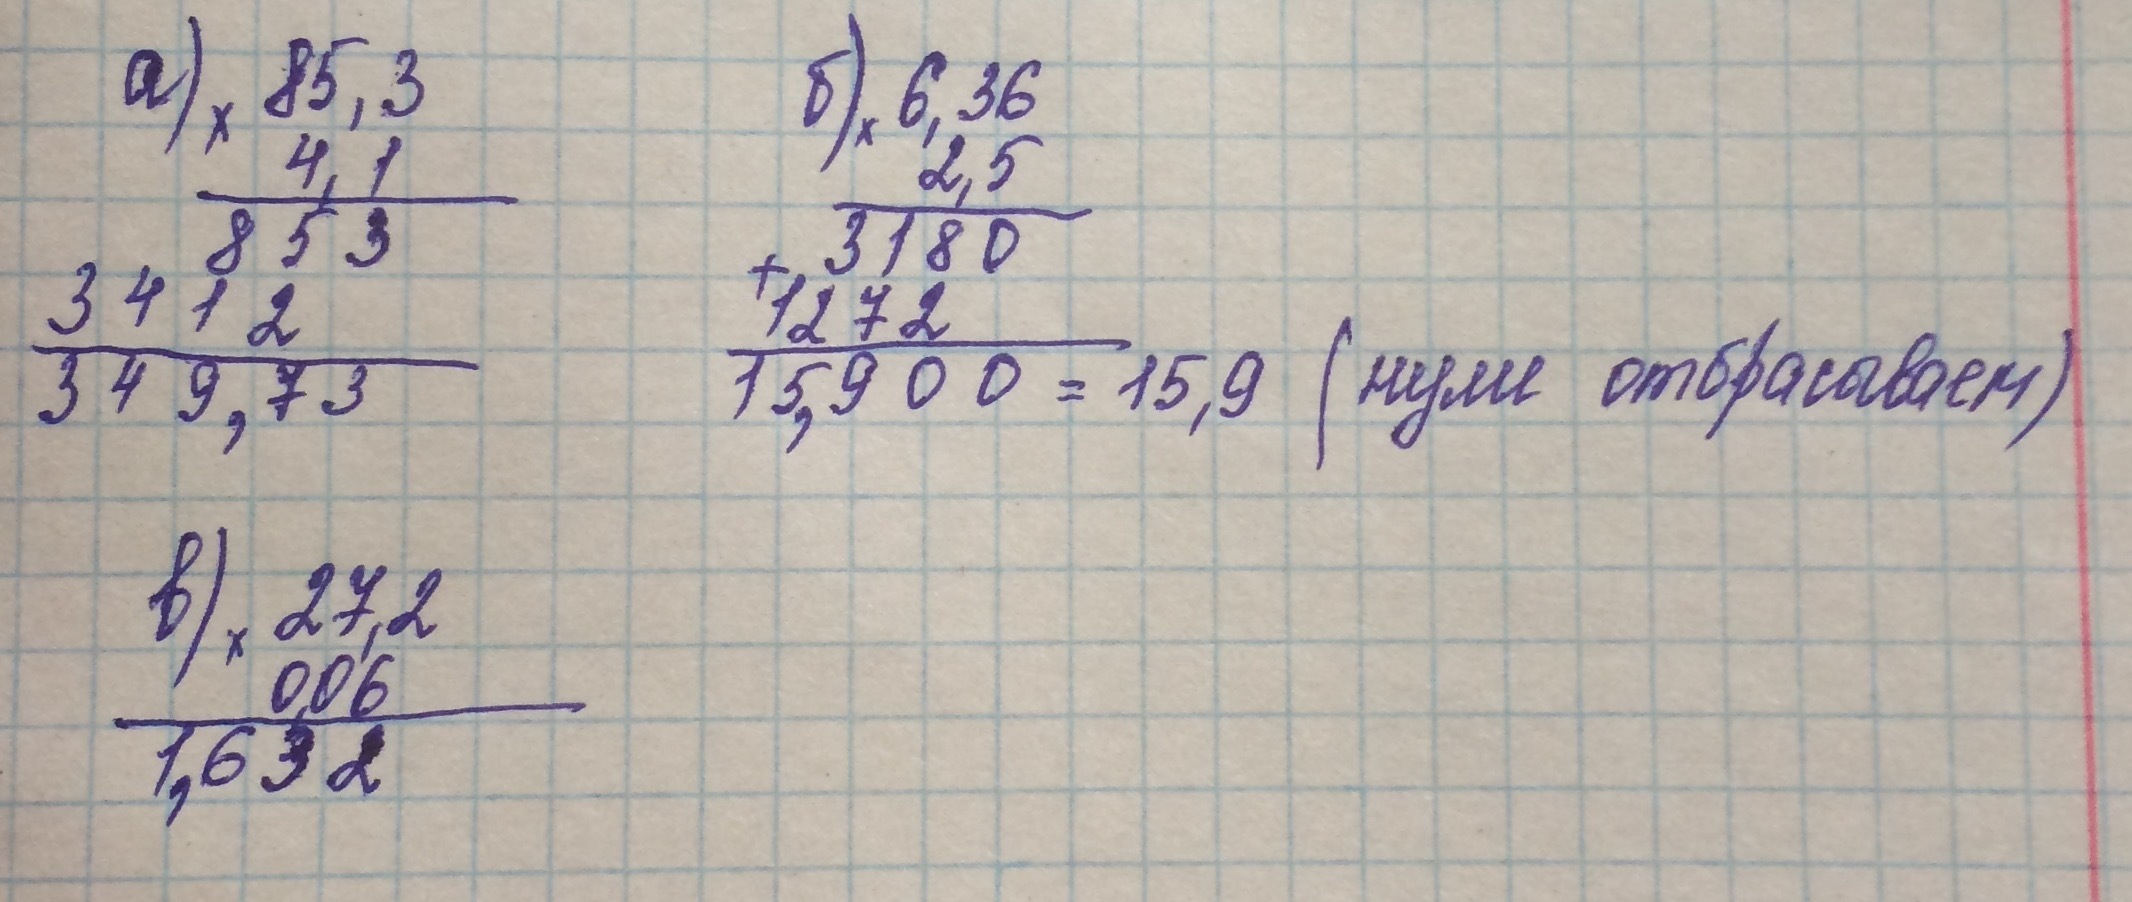 а) × 85,3
4,1
853
3412
349,73
б) × 6,36
2,5
3180
+ 1272
15,900 = 15,9 (нули отбрасываем)
в) × 27,2
0,06
1,632